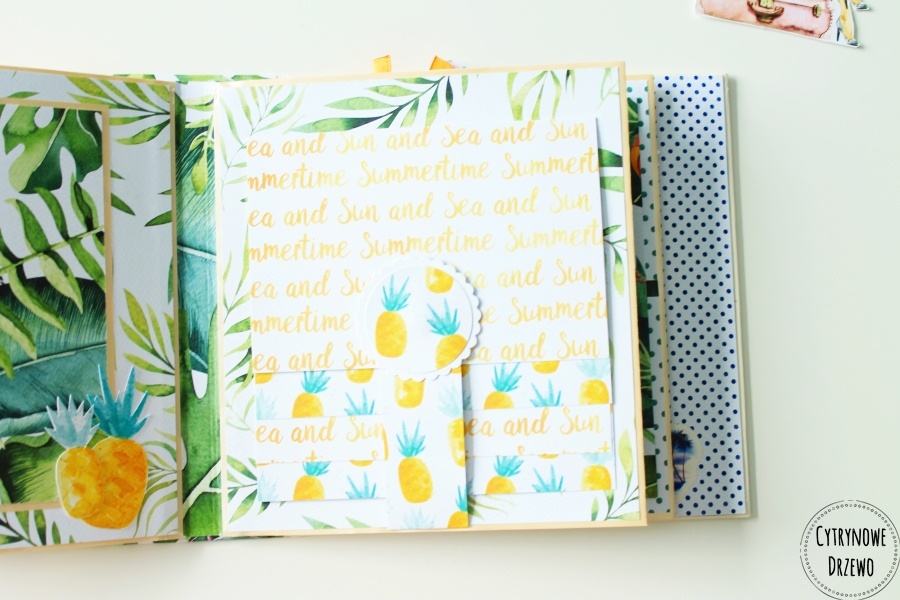 ea and Sun and Sea and Sun
mmertime Summertime Summert
ea and Sun and Sea and Sun
mmertime Summertime Summert
ea and Sun and Sun
mmertime Summert
ea and Sun ea and Sun
ea and Sun ea and Sun
CYTRYNOWE
DRZEWO